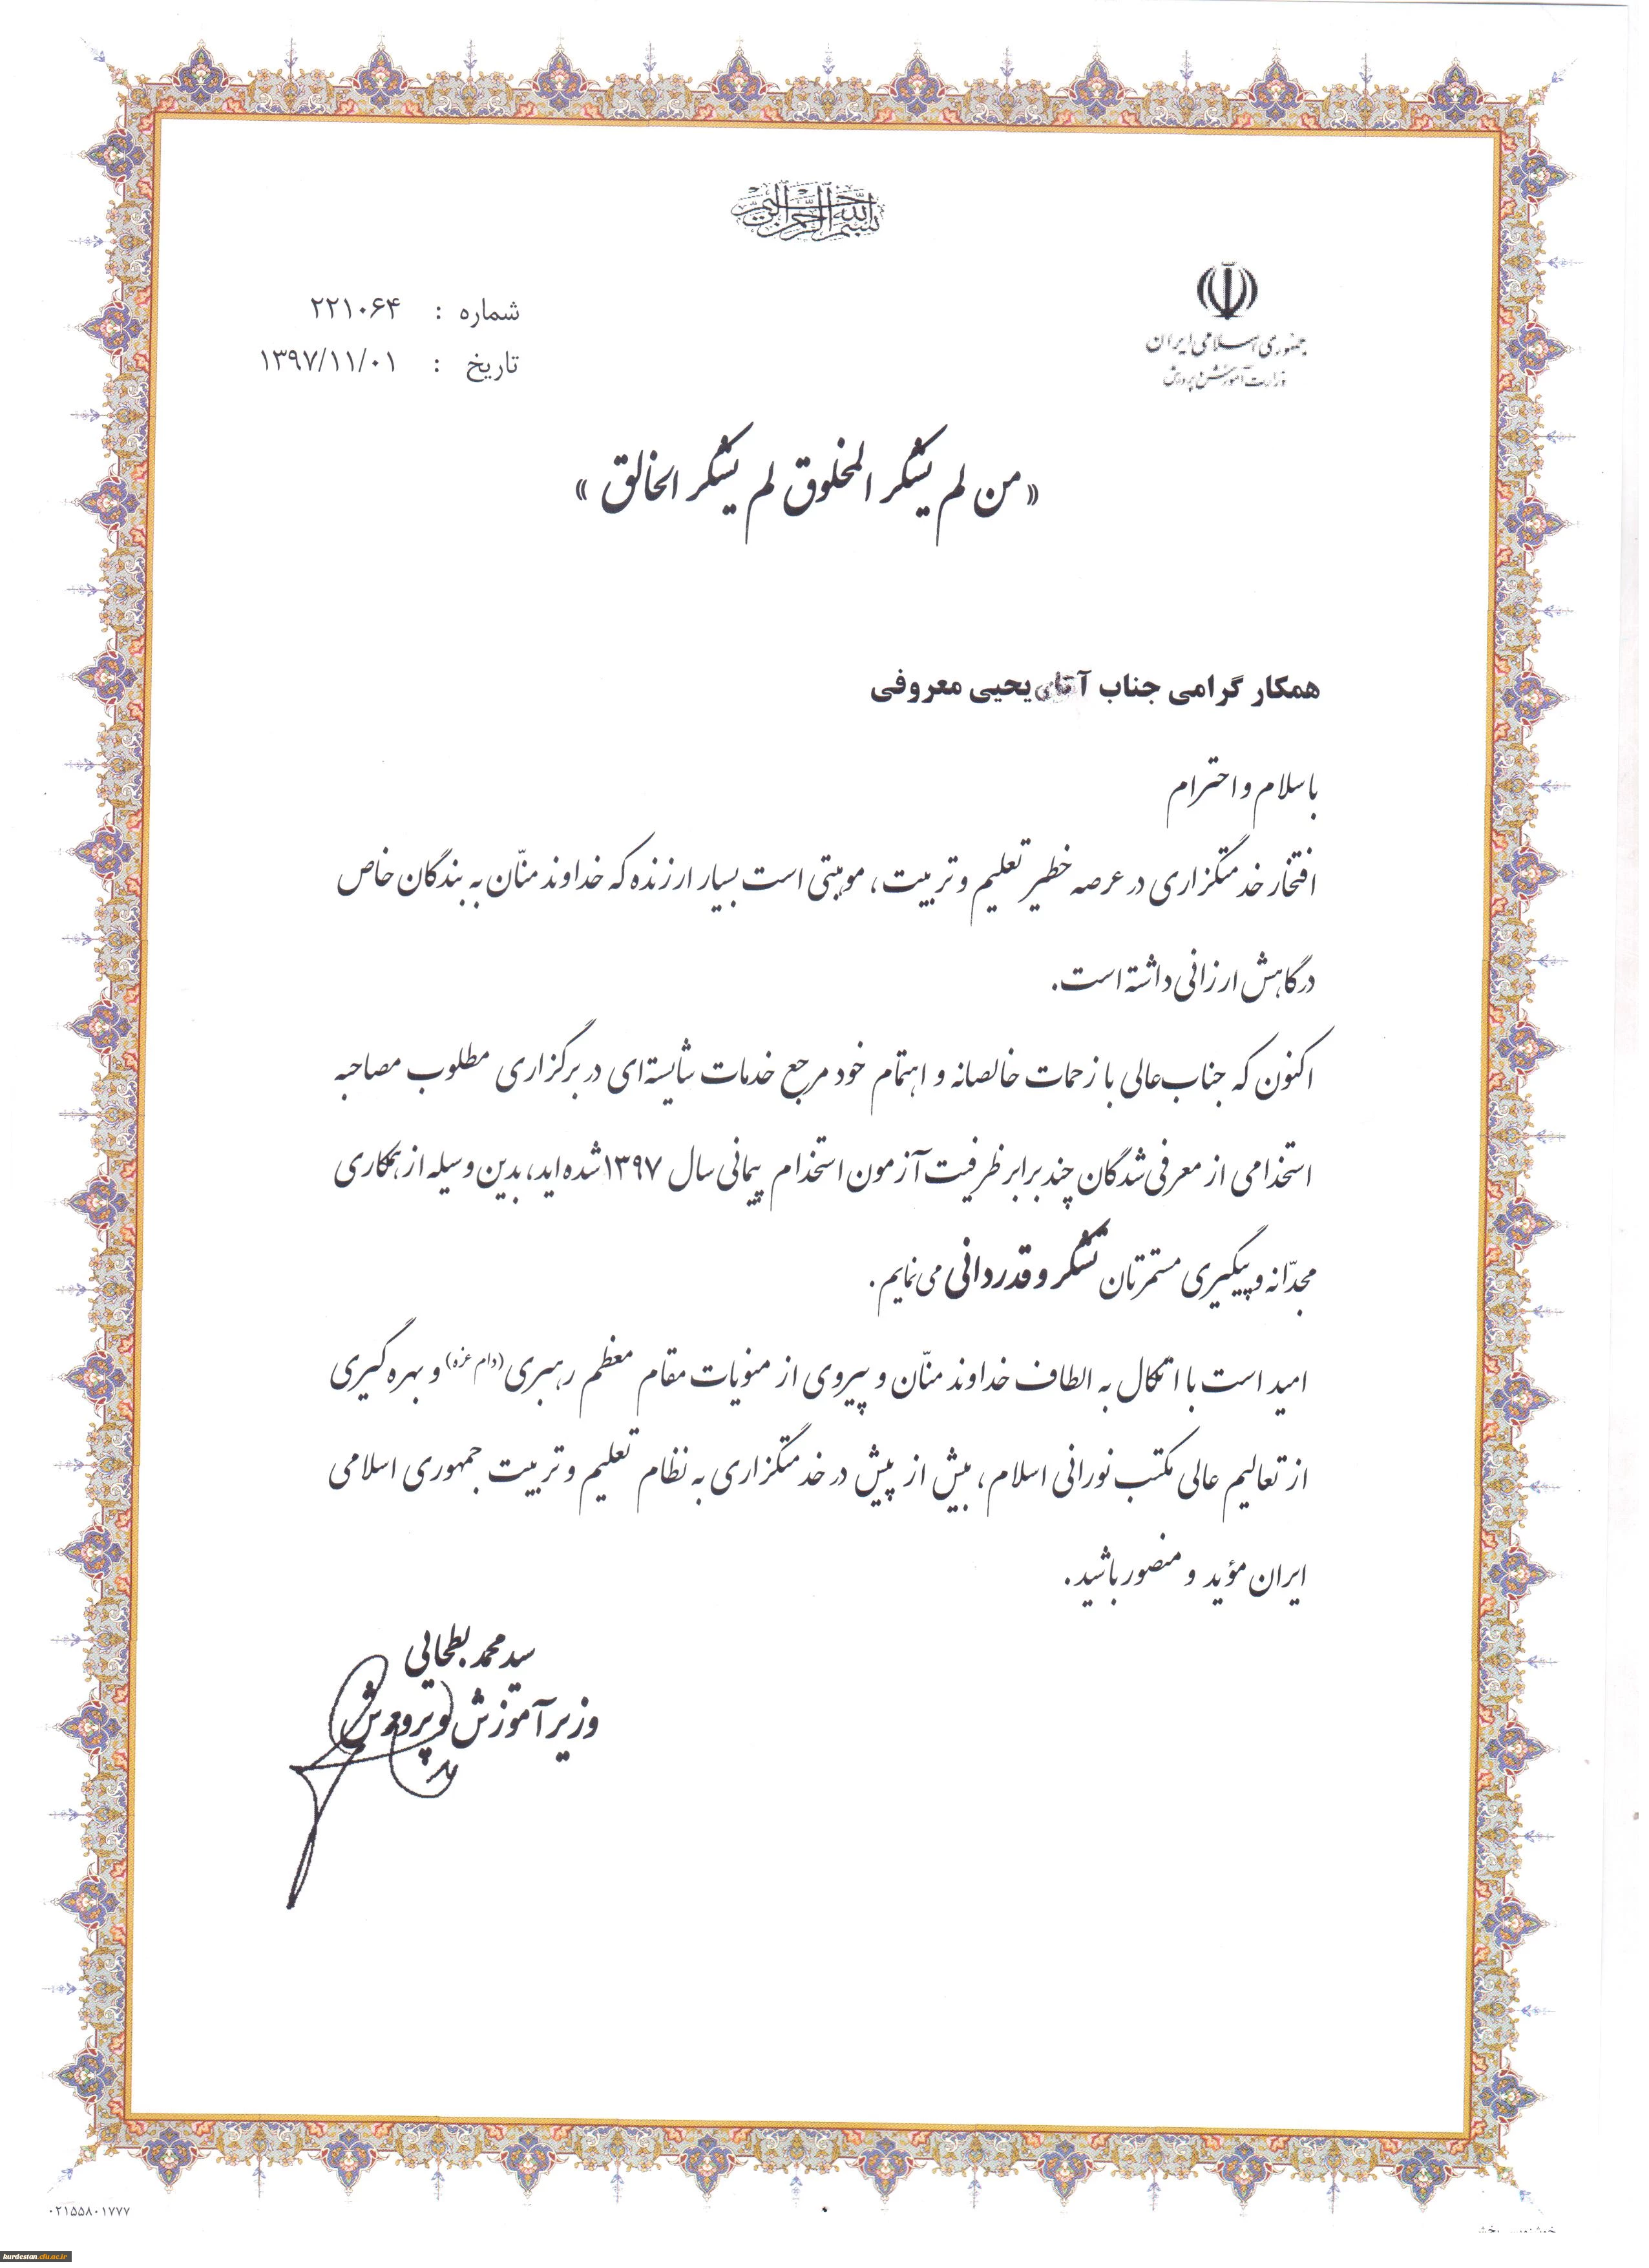 بسم الله الرحمن الرحیم
جمهوری اسلامی ایران
وزارت آموزش و پرورش
شماره : ۲۲۱۰۶۴
تاریخ : ۱۳۹۷/۱۱/۰۱
«من لم یشکر المخلوق لم یشکر الخالق»
همکار گرامی جناب آقای یحیی معروفی
با سلام و احترام
افتخار خدمتگزاری در عرصه خطیر تعلیم و تربیت، موهبتی است بسیار ارزنده که خداوند منّان به بندگان خاص
درگاهش ارزانی داشته است.
اکنون که جناب‌عالی با زحمات خالصانه و اهتمام خود مرجع خدمات شایسته‌ای در برگزاری مطلوب مصاحبه
استخدامی از معرفی شدگان چند برابر ظرفیت آزمون استخدام پیمانی سال ۱۳۹۷ شده اید، بدین وسیله از همکاری
مجدّانه و پیگیری مستمرتان تشکر و قدردانی می‌نمایم.
امید است با اتکال به الطاف خداوند منّان و پیروی از منویات مقام معظم رهبری (دام عزه) و بهره گیری
از تعالیم عالی مکتب نورانی اسلام، بیش از پیش در خدمتگزاری به نظام تعلیم و تربیت جمهوری اسلامی
ایران مؤید و منصور باشید.
سید محمد بطحائی
وزیر آموزش و پرورش
۰۲۱۵۵۸۰۱۷۷۷
kurdestan.cfu.ac.ir